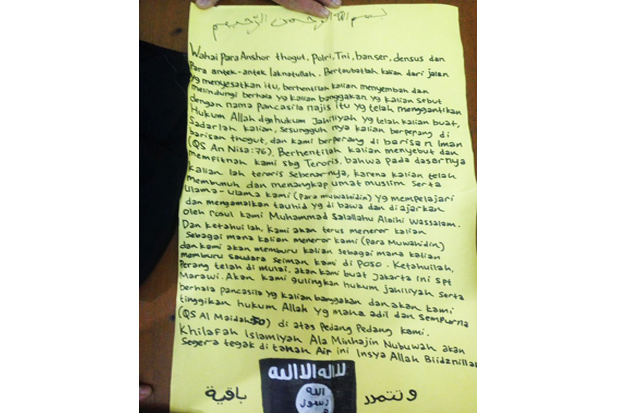 بسم الله الرحمن الرحيم
Wahai Para Anshor thogut, Polri, Tni, banser, densus dan
Para antek-antek laknatullah. Bertaubatlah kalian dari jalan
yg menyesatkan itu, berhentilah kalian menyembah dan
melindungi berhala yg kalian banggakan yg kalian sebut
dengan nama pancasila najis itu yg telah menggantikan
Hukum Allah dgn hukum Jahiliyah yg telah kalian buat,
Sadarlah kalian, sesungguh nya kalian berperang di
barisan thogut, dan kami berperang di barisan Iman
(QS An Nisa:76). Berhentilah kalian menyebut dan
mempitnah kami sbg Teroris, bahwa pada dasarnya
kalian lah teroris sebenarnya, karena kalian telah
membunuh dan menangkap umat muslim serta
ulama-ulama kami (para muwahidin) yg mempelajari
dan mengamalkan tauhid yg di bawa dan di ajarkan
oleh Rosul kami Muhammad Salallahu Alaihi Wassalam.
Dan ketahuilah, kami akan terus meneror kalian
sebagai mana kalian meneror kami (Para Muwahidin)
dan kami akan memburu kalian sebagai mana kalian
memburu saudara seiman kami di Poso. Ketahuilah,
Perang telah di mulai, akan kami buat Jakarta ini spt
Marawi. Akan kami gulingkan hukum jahiliyah serta
berhala pancasila yg kalian banggakan dan akan kami
tinggikan hukum Allah yg maha adil dan sempurna
(QS Al Maidah 50) di atas Pedang Pedang kami.
Khilafah Islamiyah Ala Minhajin Nubuwah akan
Segera tegak di tanah Air ini Insya Allah Biidznillah
لا اله الا الله
الله
رسول
باقية وتتمدد